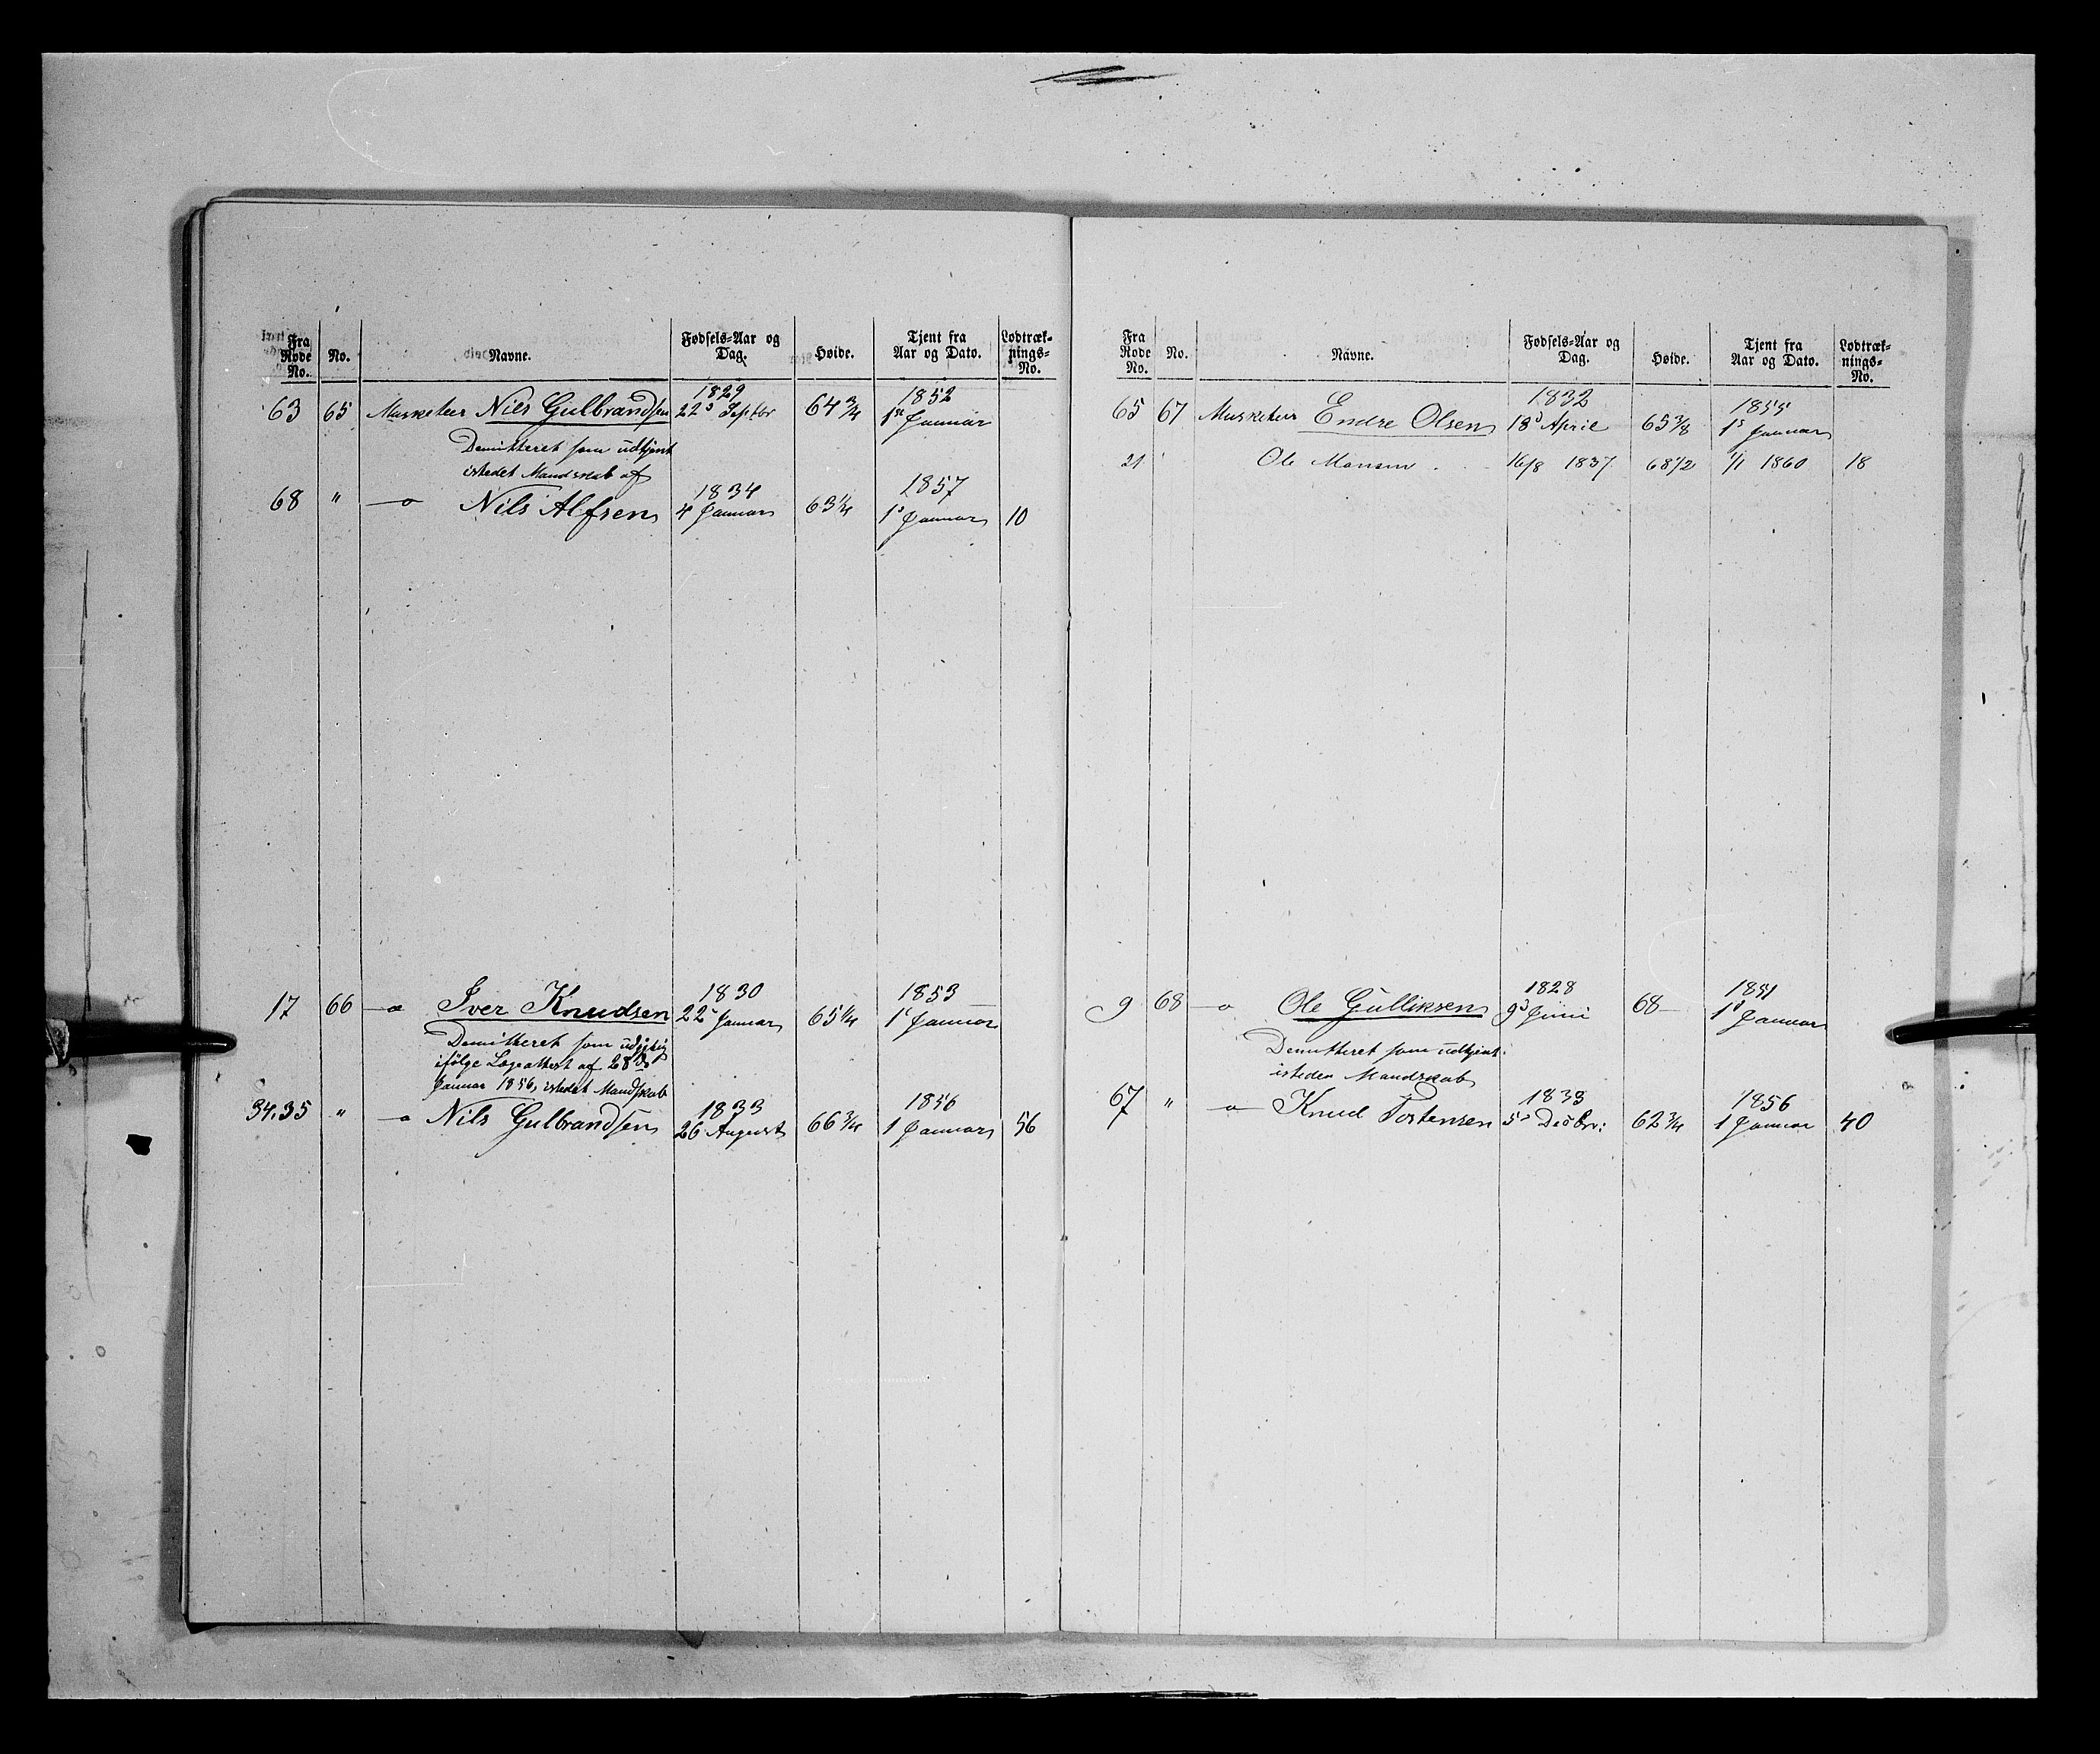 Fra Rode No. No. Navne. Fødsels-Aar og Dag. Høide. Tjent fra Aar og Dato. Lodtræknings-No.
63 65 Musketeer Nils Gulbrandsen 1829 22d Septbr 64 3/4 1852 1ste Januar
Demitteret som udtjent
istedet Mandskab af
68 " —o Nils Alfsen 1834 4 Januar 63 1/4 1857 1s Januar 10
17 66 —o Iver Knudsen 1830 22 Januar 65 1/4 1853 1 Januar
Demitteret som udygtig
ifølge Lægeattest af 28de
Januar 1856, istedet Mandskab
34.35 " —o Nils Gulbrandsen 1833 26 August 66 3/4 1856 1 Januar 56
Fra Rode No. No. Navne. Fødsels-Aar og Dag. Høide. Tjent fra Aar og Dato. Lodtræknings-No.
65 67 Musketeer Endre Olsen 1832 18d April 65 3/8 1855 1s Januar
21 Ole Monsen 16/8 1837 68 1/2 1/1 1860 18
9 68 —o Ole Gulliksen 1828 9d Juni 68 1851 1d Januar
Demitteret som udtjent
isteden Mandskab
67 " —o Knud Tostensen 1833 5 Decbr: 62 3/4 1856 1 Januar 40